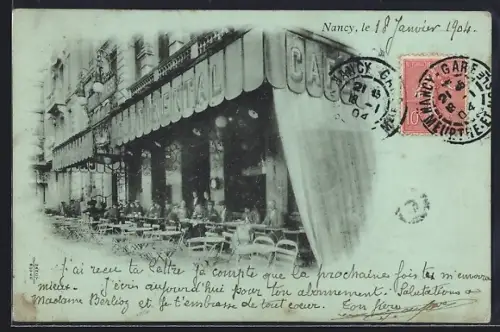 Nancy, le 18 Janvier 1904.
CAFÉ
NANCY-GARE
21
18 -1
04
MEURTHE-ET
10
J'ai reçu ta lettre je compte que la prochaine fois tu m'enverras
mieux. J'écris aujourd'hui pour ton abonnement. Salutations à
Madame Berlioz et je t'embrasse de tout cœur. Ton père